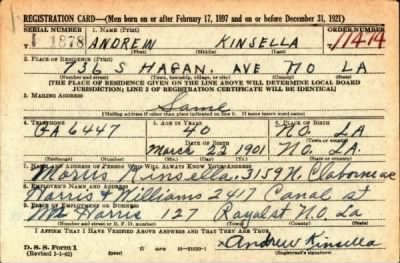 REGISTRATION CARD—(Men born on or after February 17, 1897 and on or before December 31, 1921)
SERIAL NUMBER 1. NAME (Print) ORDER NUMBER
1878 ANDREW KINSELLA 11414
(First) (Middle) (Last)
2. PLACE OF RESIDENCE (Print)
736 S HAGAN, AVE NO LA
(Number and street) (Town, township, village, or city) (County) (State)
[THE PLACE OF RESIDENCE GIVEN ON THE LINE ABOVE WILL DETERMINE LOCAL BOARD
JURISDICTION; LINE 2 OF REGISTRATION CERTIFICATE WILL BE IDENTICAL]
3. MAILING ADDRESS
Same
[Mailing address if other than place indicated on line 2. If same insert word same]
4. TELEPHONE 5. AGE IN YEARS 6. PLACE OF BIRTH
GA 6447 40 NO.
DATE OF BIRTH (Town or county)
March 23 1901 LA
(Exchange) (Number) (Mo.) (Day) (Yr.) (State or country)
7. NAME AND ADDRESS OF PERSON WHO WILL ALWAYS KNOW YOUR ADDRESS
Morris Kinsella. 3159 N. Claborne
8. EMPLOYER'S NAME AND ADDRESS
Harris & Williams 2417 Canal st
9. PLACE OF EMPLOYMENT OR BUSINESS
Mr Harris 127 Royal st N.O. La
(Number and street or R. F. D. number) (Town) (County) (State)
I AFFIRM THAT I HAVE VERIFIED ABOVE ANSWERS AND THAT THEY ARE TRUE.
D. S. S. Form 1
(Revised 1-1-42) (over) 16—21630-1 x Andrew Kinsella
(Registrant's signature)